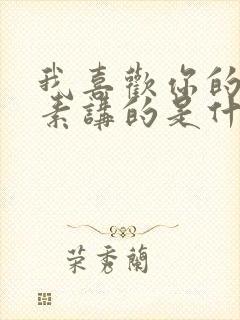 我喜歡你的
素講的是什
榮秀蘭